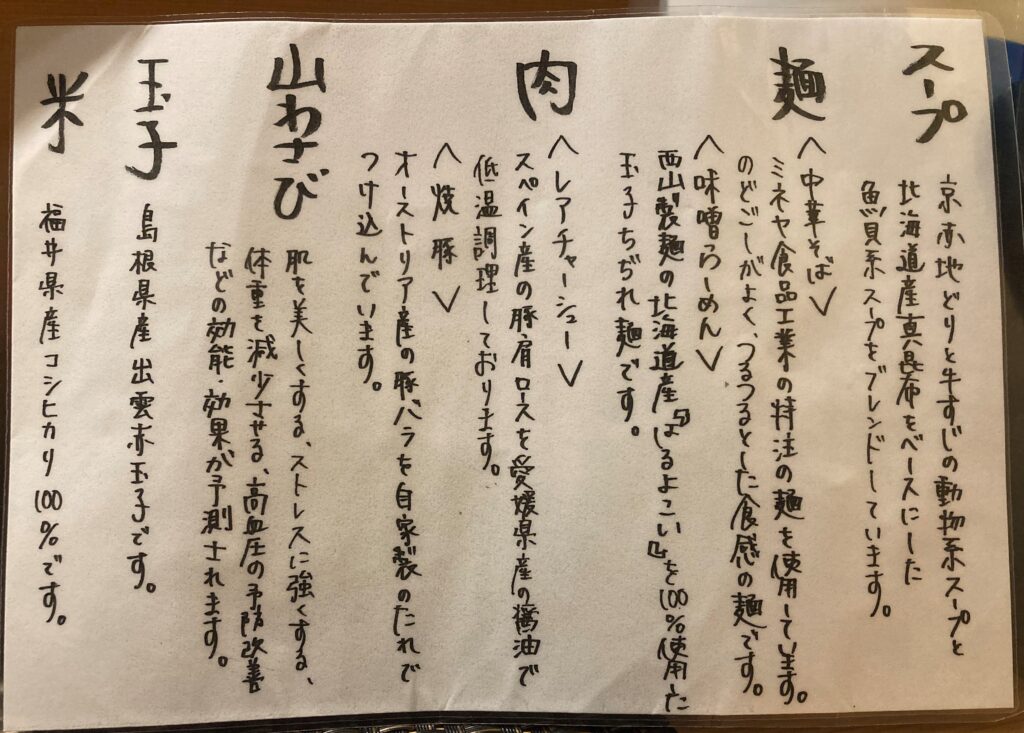 スープ
京赤地どりと牛すじの動物系スープと
北海道産真昆布をベースにした
魚貝系スープをブレンドしています。
麺
〈中華そば〉
ミネヤ食品工業の特注の麺を使用しています。
のどごしがよく、つるつるとした食感の麺です。
〈味噌らーめん〉
西山製麺の北海道産『はるよこい』を100%使用した
玉子ちぢれ麺です。
肉
〈レアチャーシュー〉
スペイン産の豚肩ロースを愛媛県産の醤油で
低温調理しております。
〈焼豚〉
オーストリア産の豚バラを自家製のたれで
つけ込んでいます。
山わさび
肌を美しくする、ストレスに強くする、
体重を減少させる、高血圧の予防改善
などの効能・効果が予測されます。
玉子
島根県産出雲赤玉子です。
米
福井県産コシヒカリ100%です。